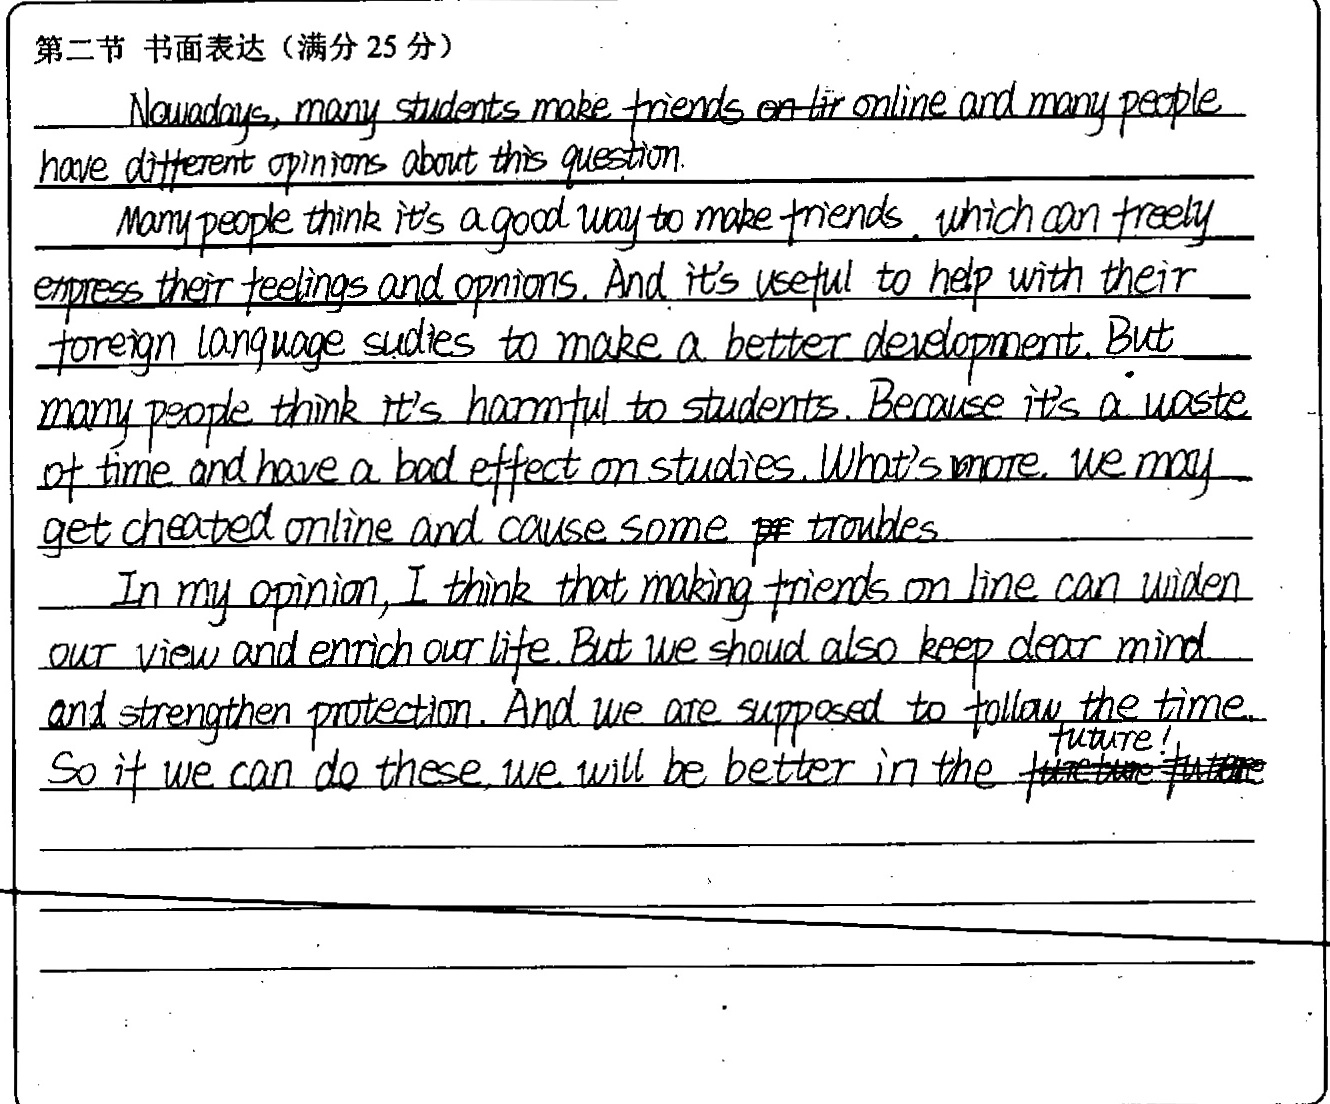 第二节 书面表达（满分 25 分）
Nowadays, many students make friends on lir online and many people
have different opinions about this question.
Many people think it's a good way to make friends, which can freely
express their feelings and opnions. And it's useful to help with their
foreign language sudies to make a better development. But
many people think it's harmful to students. Because it's a waste
of time and have a bad effect on studies. What's more, we may
get cheated online and cause some troubles
In my opinion, I think that making friends on line can widen
our view and enrich our life. But we shoud also keep clear mind
and strengthen protection. And we are supposed to follow the time.
future!
So if we can do these, we will be better in the